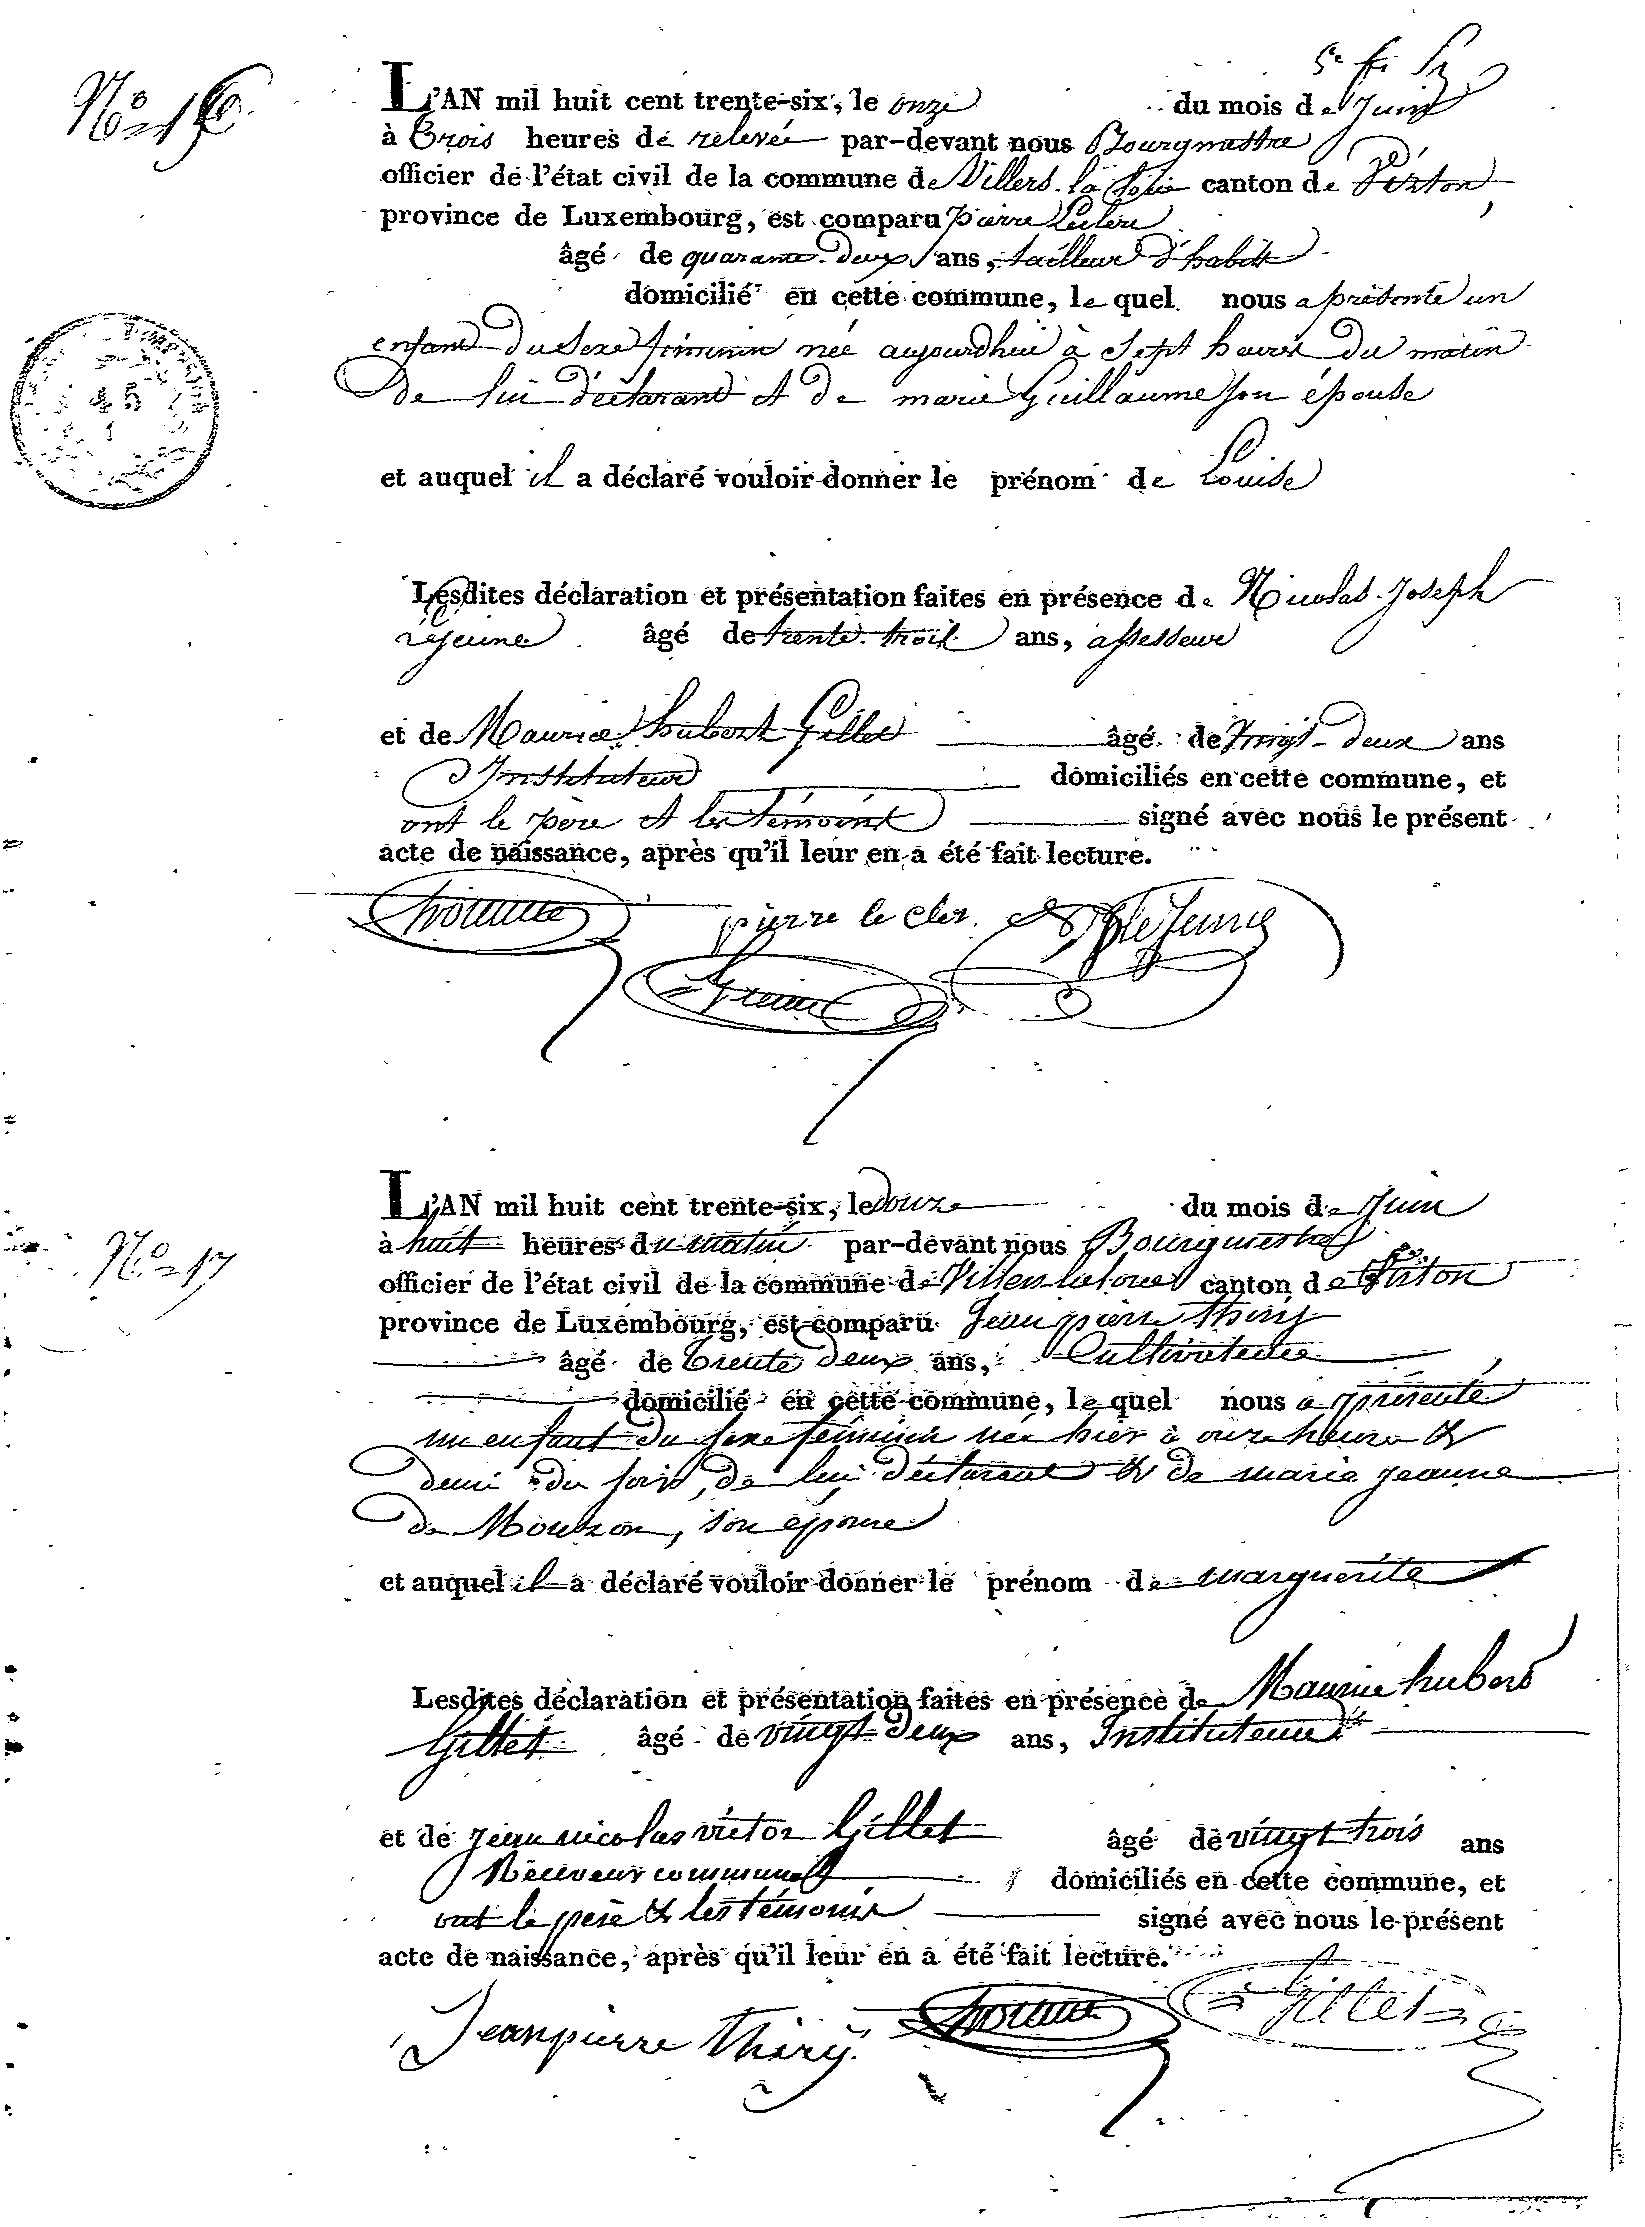 N° 16
L'AN mil huit cent trente-six, le onze du mois de Juin
à trois heures de relevée par-devant nous Bourgmestre
officier de l'état civil de la commune de Villers-la-loue canton de Virton,
province de Luxembourg, est comparu pierre Leclere
âgé de quarante-deux ans, tailleur d'habits
domicilié en cette commune, le quel nous a présenté un
enfant du sexe féminin née aujourdhui à sept heures du matin
de lui déclarant et de marie Guillaume son épouse
45
et auquel il a déclaré vouloir donner le prénom de Louise
Lesdites déclaration et présentation faites en présence de Nicolas-Joseph
lejeune âgé de trente-trois ans, assesseur
et de Maurice hubert Gillet âgé de vingt-deux ans
Instituteur domiciliés en cette commune, et
ont le père et les témoins signé avec nous le présent
acte de naissance, après qu'il leur en a été fait lecture.
pierre le cler lejeune
L'AN mil huit cent trente-six, le douze du mois de Juin
N° 17
à huit heures du matin par-devant nous Bourgmestre
officier de l'état civil de la commune de Villers-la-loue canton de Virton
province de Luxembourg, est comparu Jean pierre Thiry
âgé de trente deux ans, Cultivateur
domicilié en cette commune, le quel nous a présenté
un enfant du sexe féminin née hier à onze heures &
demi du soir, de lui déclarant & de marie jeanne
de Mouzon, son épouse
et auquel il a déclaré vouloir donner le prénom de marguerite
Lesdites déclaration et présentation faites en présence de Maurice hubert
Gillet âgé de vingt deux ans, Instituteur
et de jean nicolas victor Gillet âgé de vingt trois ans
Receveur communal domiciliés en cette commune, et
ont le père & les témoins signé avec nous le présent
acte de naissance, après qu'il leur en a été fait lecture.
Jean pierre Thiry Gillet